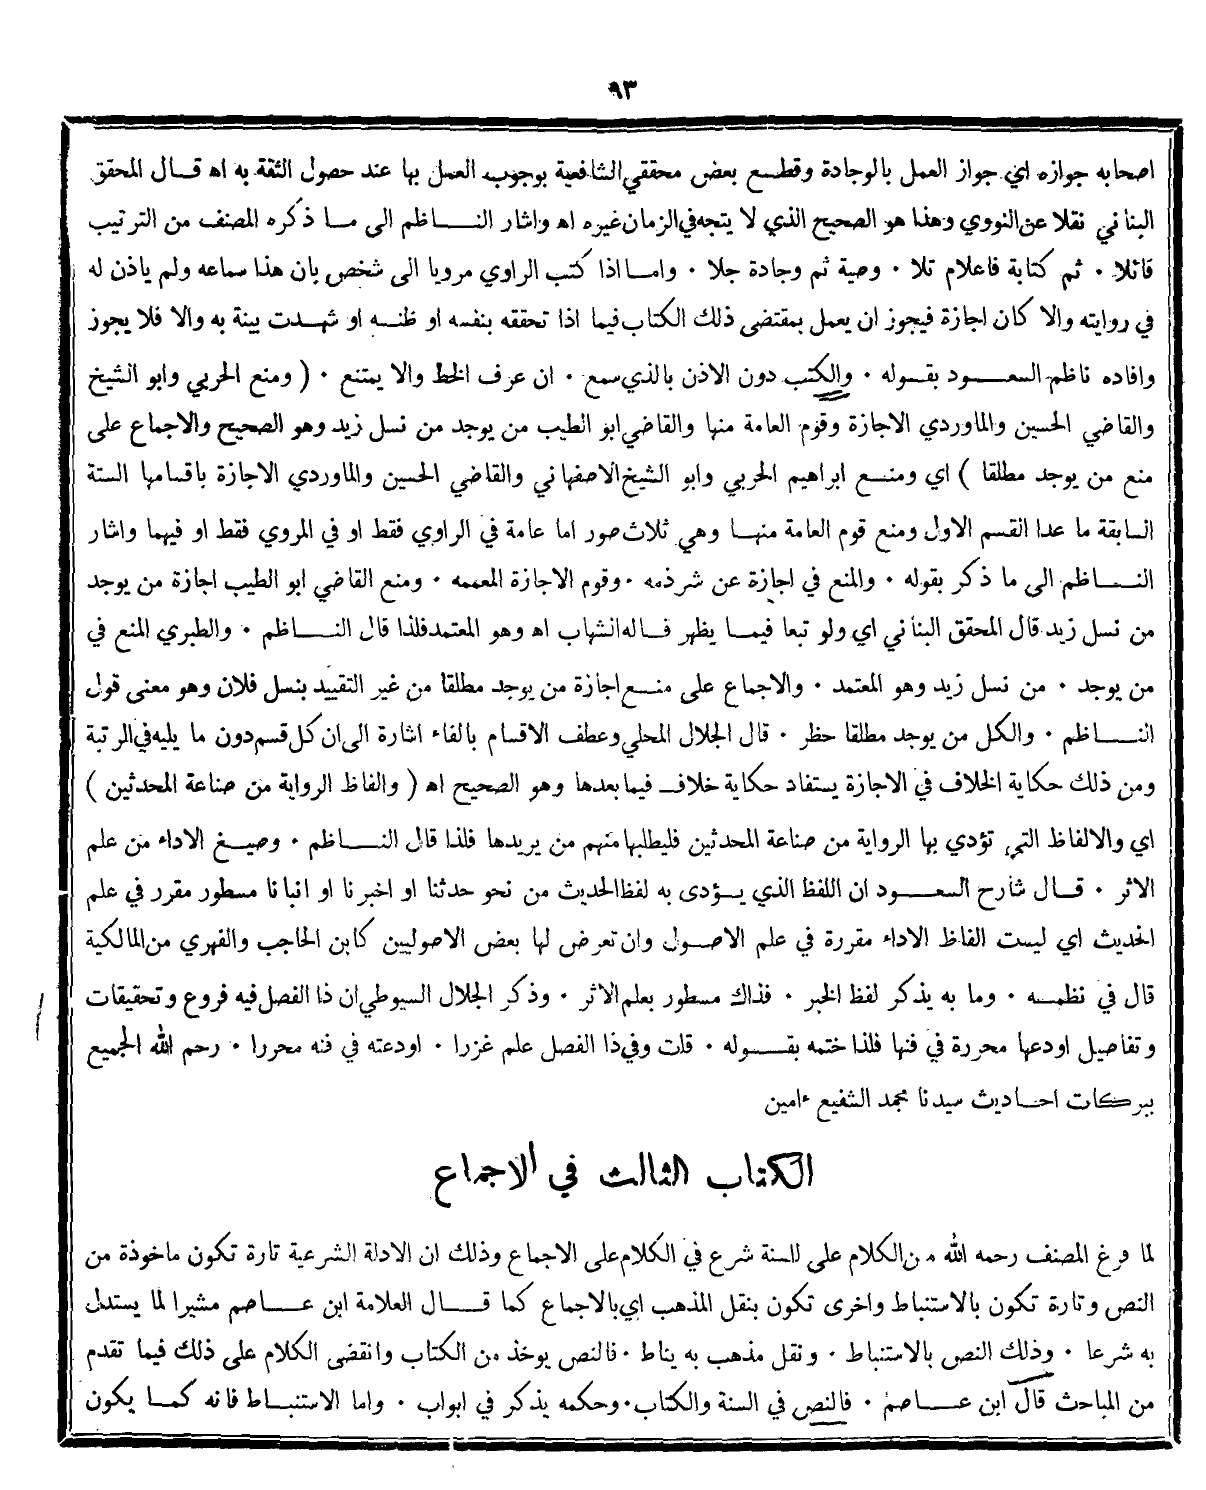 ٩٣
اصحابه جوازه اي جواز العمل بالوجادة وقطـع بعض محققي الشافعية بوجوب العمل بها عند حصول الثقة به اه قـال المحقق
البناني نقلا عن النووي وهذا هو الصحيح الذي لا يتجه في الزمان غيره اه واشار النـاظم الى مـا ذكره المصنف من الترتيب
قائلا ٠ ثم كتابة فاعلام تلا ٠ وصية ثم وجادة جلا ٠ وامـا اذا كتب الراوي مرويا الى شخص بان هذا سماعه ولم ياذن له
في روايته والا كان اجازة فيجوز ان يعمل بمقتضى ذلك الكتاب فيما اذا تحققه بنفسه او ظنـه او شهـدت بينة به والا فلا يجوز
وافاده ناظم السعـود بقـوله ٠ والكتب دون الاذن بالذي سمع ٠ ان عرف الخط والا يمتنع ٠ ( ومنع الحربي وابو الشيخ
والقاضي الحسين والماوردي الاجازة وقوم العامة منها والقاضي ابو الطيب من يوجد من نسل زيد وهو الصحيح والاجماع على
منع من يوجد مطلقا ) اي ومنـع ابراهيم الحربي وابو الشيخ الاصفهاني والقاضي الحسين والماوردي الاجازة باقسامها الستة
السابقة ما عدا القسم الاول ومنع قوم العامة منهـا وهي ثلاث صور اما عامة في الراوي فقط او في المروي فقط او فيهما واشار
النـاظم الى ما ذكر بقوله ٠ والمنع في اجازة عن شرذمه ٠ وقوم الاجازة المعممه ٠ ومنع القاضي ابو الطيب اجازة من يوجد
من نسل زيد قال المحقق البناني اي ولو تبعا فيمـا يظهر قـاله الشهاب اه وهو المعتمد فلذا قال النـاظم ٠ والطبري المنع في
من يوجد ٠ من نسل زيد وهو المعتمد ٠ والاجماع على منـع اجازة من يوجد مطلقا من غير التقييد بنسل فلان وهو معنى قول
النـاظم ٠ والكل من يوجد مطلقا حظر ٠ قال الجلال المحلي وعطف الاقسام بالفاء اشارة الى ان كل قسم دون ما يليه في الرتبة
ومن ذلك حكاية الخلاف في الاجازة يستفاد حكاية خلاف فيما بعدها وهو الصحيح اه ( والفاظ الرواية من صناعة المحدثين )
اي والالفاظ التي تؤدي بها الرواية من صناعة المحدثين فليطلبها منهم من يريدها فلذا قال النـاظم ٠ وصيـغ الاداء من علم
الاثر ٠ قـال شارح السعـود ان اللفظ الذي يـؤدى به لفظ الحديث من نحو حدثنا او اخبرنا او انبانا مسطور مقرر في علم
الحديث اي ليست الفاظ الاداء مقررة في علم الاصـول وان تعرض لها بعض الاصوليين كابن الحاجب والفهري من المالكية
قال في نظمـه ٠ وما به يذكر لفظ الخبر ٠ فذاك مسطور بعلم الاثر ٠ وذكر الجلال السيوطي ان ذا الفصل فيه فروع وتحقيقات
وتفاصيل اودعها محررة في فنها فلذا ختمه بقـوله ٠ قلت وفي ذا الفصل علم غزرا ٠ اودعته في فنه محررا ٠ رحم الله الجميع
ببركات احـاديث سيدنا محمد الشفيع ءامين
الكتاب الثالث في الاجماع
لما فرغ المصنف رحمه الله من الكلام على السنة شرع في الكلام على الاجماع وذلك ان الادلة الشرعية تارة تكون ماخوذة من
النص وتارة تكون بالاستنباط واخرى تكون بنقل المذهب اي بالاجماع كما قـال العلامة ابن عـاصم مشيرا لما يستدل
به شرعا ٠ وذلك النص بالاستنباط ٠ ونقل مذهب به يناط ٠ فالنص يوخذ من الكتاب وانقضى الكلام على ذلك فيما تقدم
من المباحث قال ابن عـاصم ٠ فالنص في السنة والكتاب ٠ وحكمه يذكر في ابواب ٠ واما الاستنبـاط فانه كمـا يكون